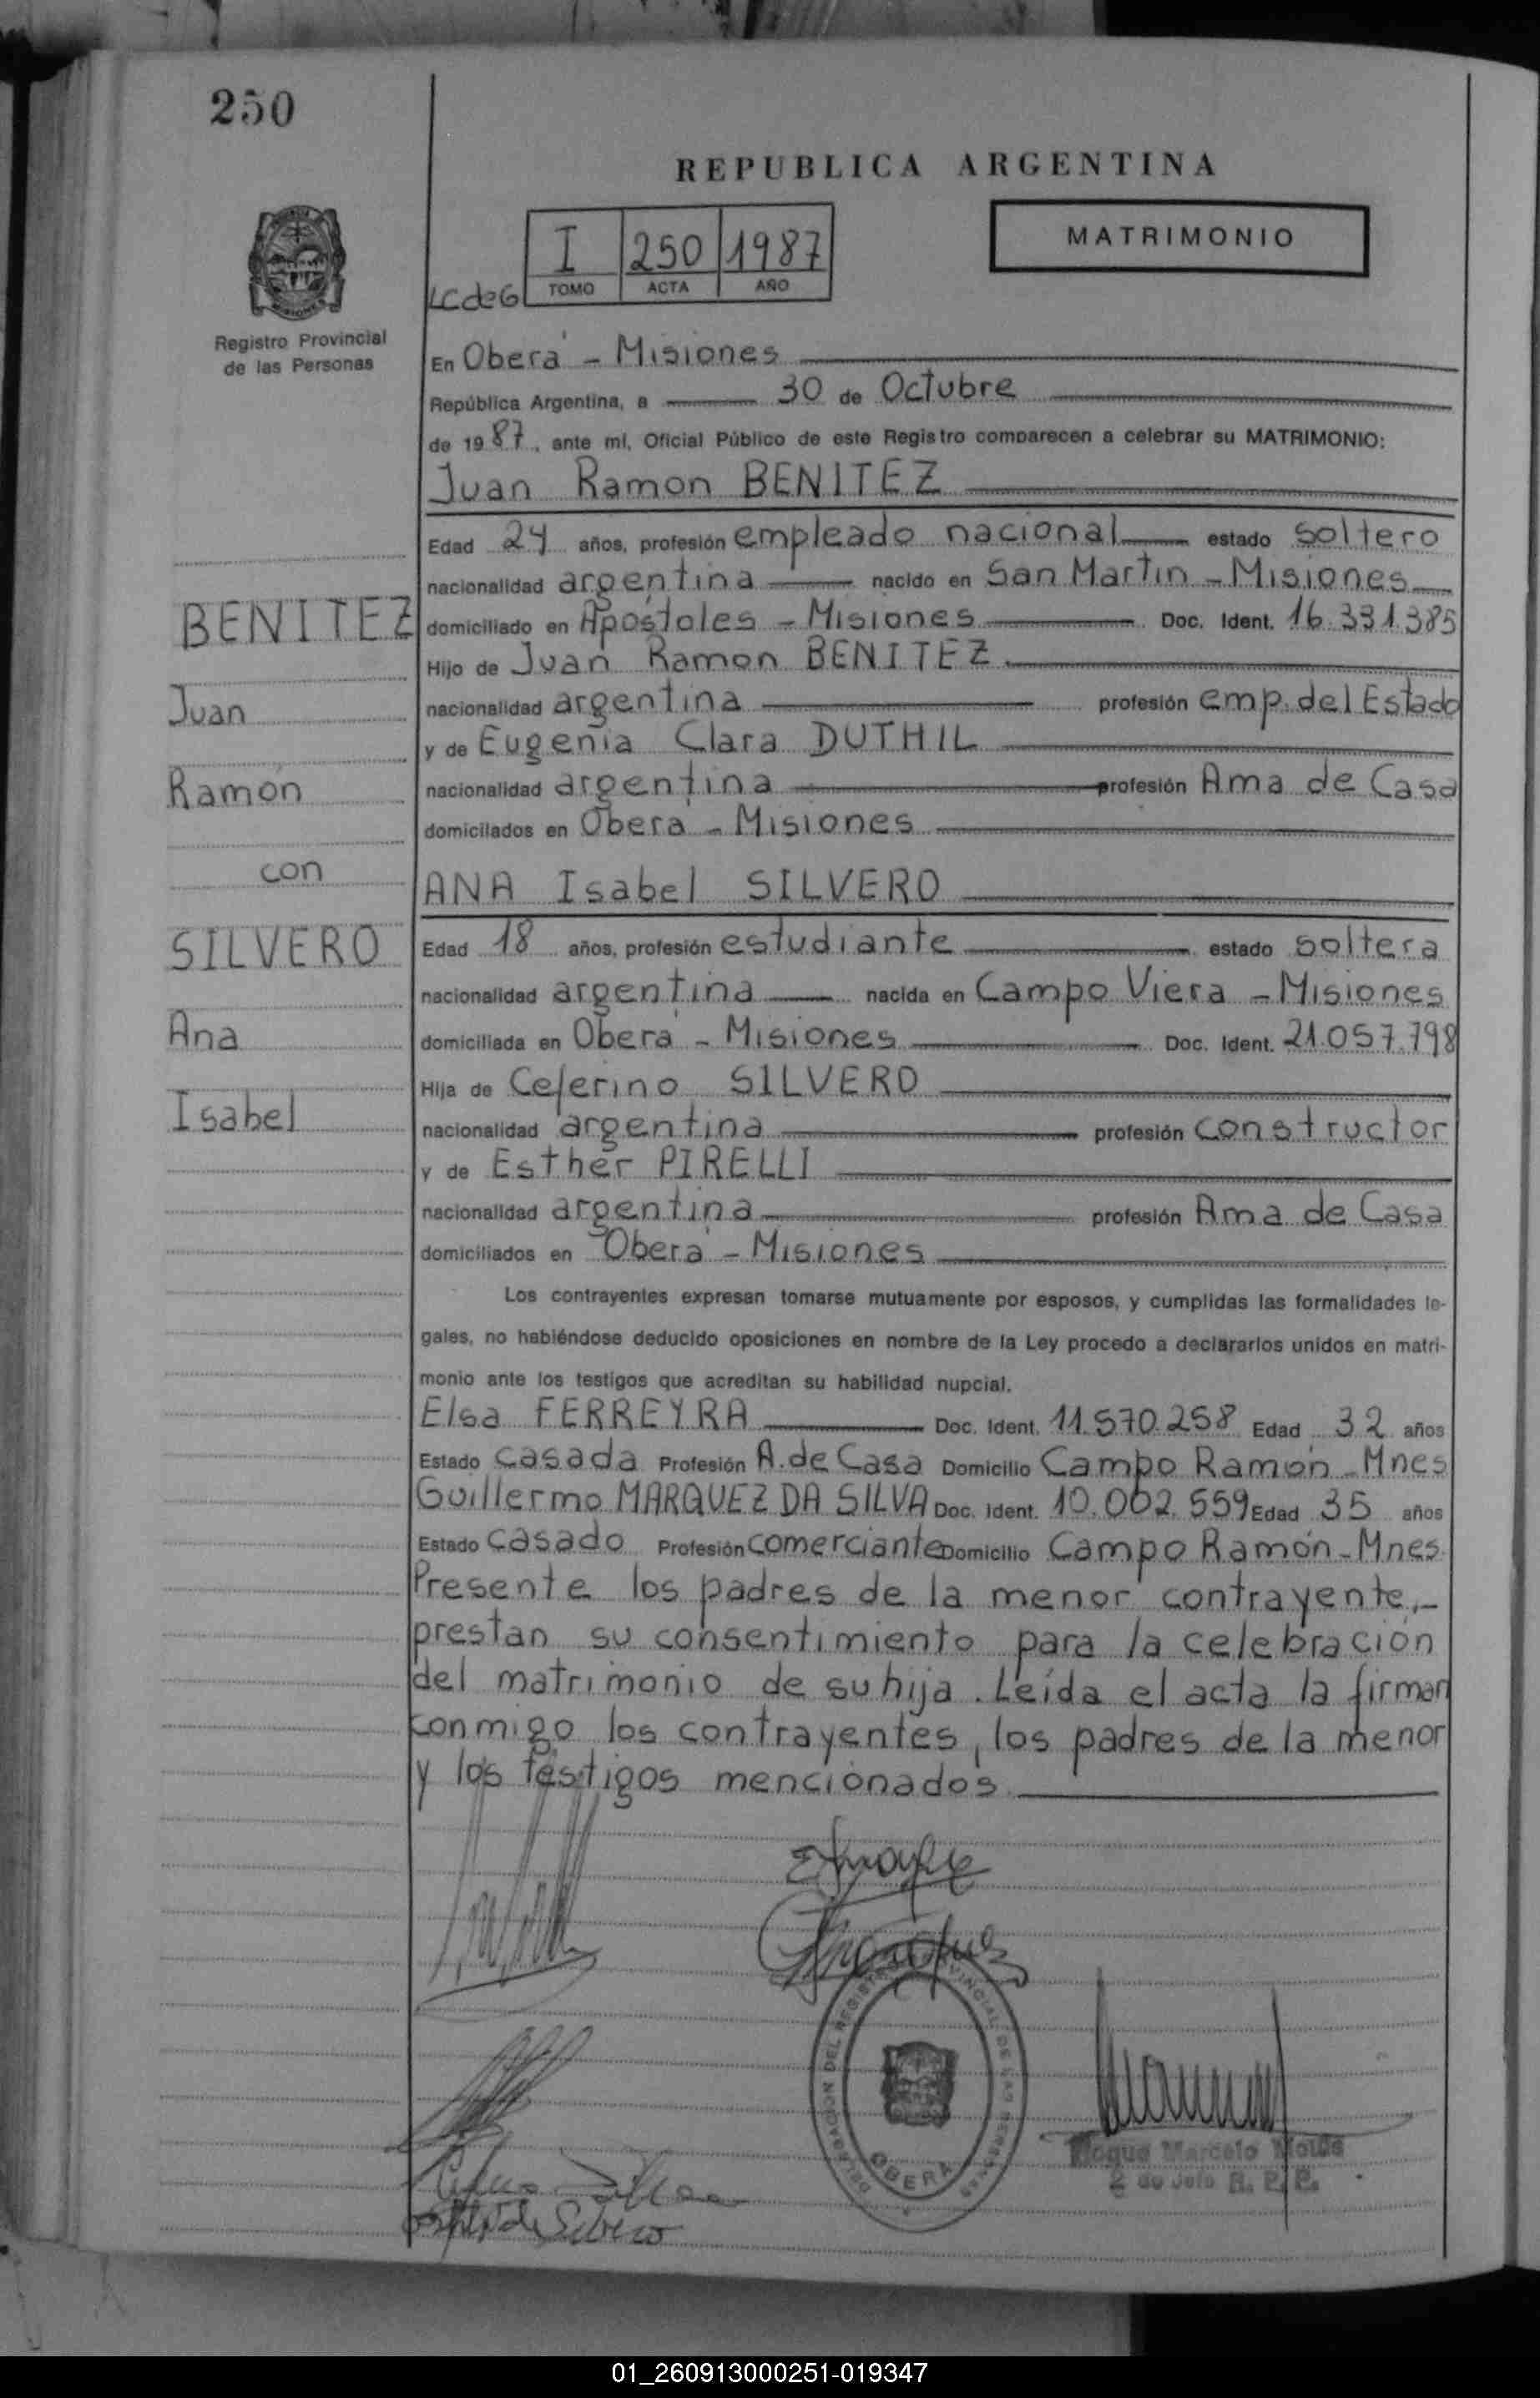 250
REPUBLICA ARGENTINA
MATRIMONIO
I 250 1987
TOMO ACTA AÑO
LCdeG
Registro Provincial
de las Personas
En Oberá - Misiones
República Argentina, a 30 de Octubre
de 1987, ante mí, Oficial Público de este Registro comparecen a celebrar su MATRIMONIO:
Juan Ramon BENITEZ
Edad 24 años, profesión empleado nacional estado soltero
nacionalidad argentina nacido en San Martin - Misiones
BENITEZ
domiciliado en Apóstoles - Misiones Doc. Ident. 16.331.385
Hijo de Juan Ramon BENITEZ
Juan
nacionalidad argentina profesión emp. del Estado
y de Eugenia Clara DUTHIL
Ramón
nacionalidad argentina profesión Ama de Casa
domiciliados en Oberá - Misiones
con
ANA Isabel SILVERO
SILVERO
Edad 18 años, profesión estudiante estado soltera
nacionalidad argentina nacida en Campo Viera - Misiones
Ana
domiciliada en Oberá - Misiones Doc. Ident. 21.057.798
Hija de Ceferino SILVERO
Isabel
nacionalidad argentina profesión constructor
y de Esther PIRELLI
nacionalidad argentina profesión Ama de Casa
domiciliados en Oberá - Misiones
Los contrayentes expresan tomarse mutuamente por esposos, y cumplidas las formalidades le-
gales, no habiéndose deducido oposiciones en nombre de la Ley procedo a declararlos unidos en matri-
monio ante los testigos que acreditan su habilidad nupcial.
Elsa FERREYRA Doc. Ident. 11.570.258 Edad 32 años
Estado casada Profesión A. de Casa Domicilio Campo Ramón - Mnes
Guillermo MARQUEZ DA SILVA Doc. Ident. 10.002.559 Edad 35 años
Estado casado Profesión comerciante Domicilio Campo Ramón - Mnes
Presente los padres de la menor contrayente,-
prestan su consentimiento para la celebración
del matrimonio de su hija. Leída el acta la firman
conmigo los contrayentes, los padres de la menor
y los testigos mencionados.
DELEGACION DEL REGISTRO PROVINCIAL DE LAS PERSONAS
OBERA
Roque Marcelo
R. P. P.
de Silvero
01_260913000251-019347